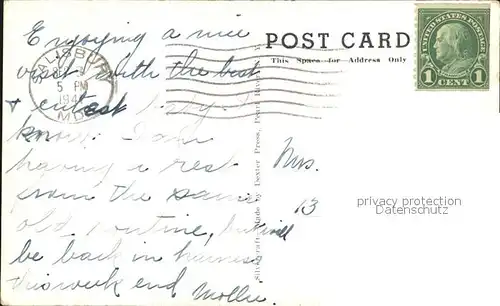 Enjoying a nice
visit with the best
& cutest baby I
know. I am
having a rest
from the same
old routine, but will
be back in harness
this week end
Mollie
SALISBURY
5 PM
MD.
POST CARD
This Space for Address Only
UNITED STATES POSTAGE
1 CENT 1
Made by Dexter Press, Pearl River
Mrs.
13
privacy protection
Datenschutz